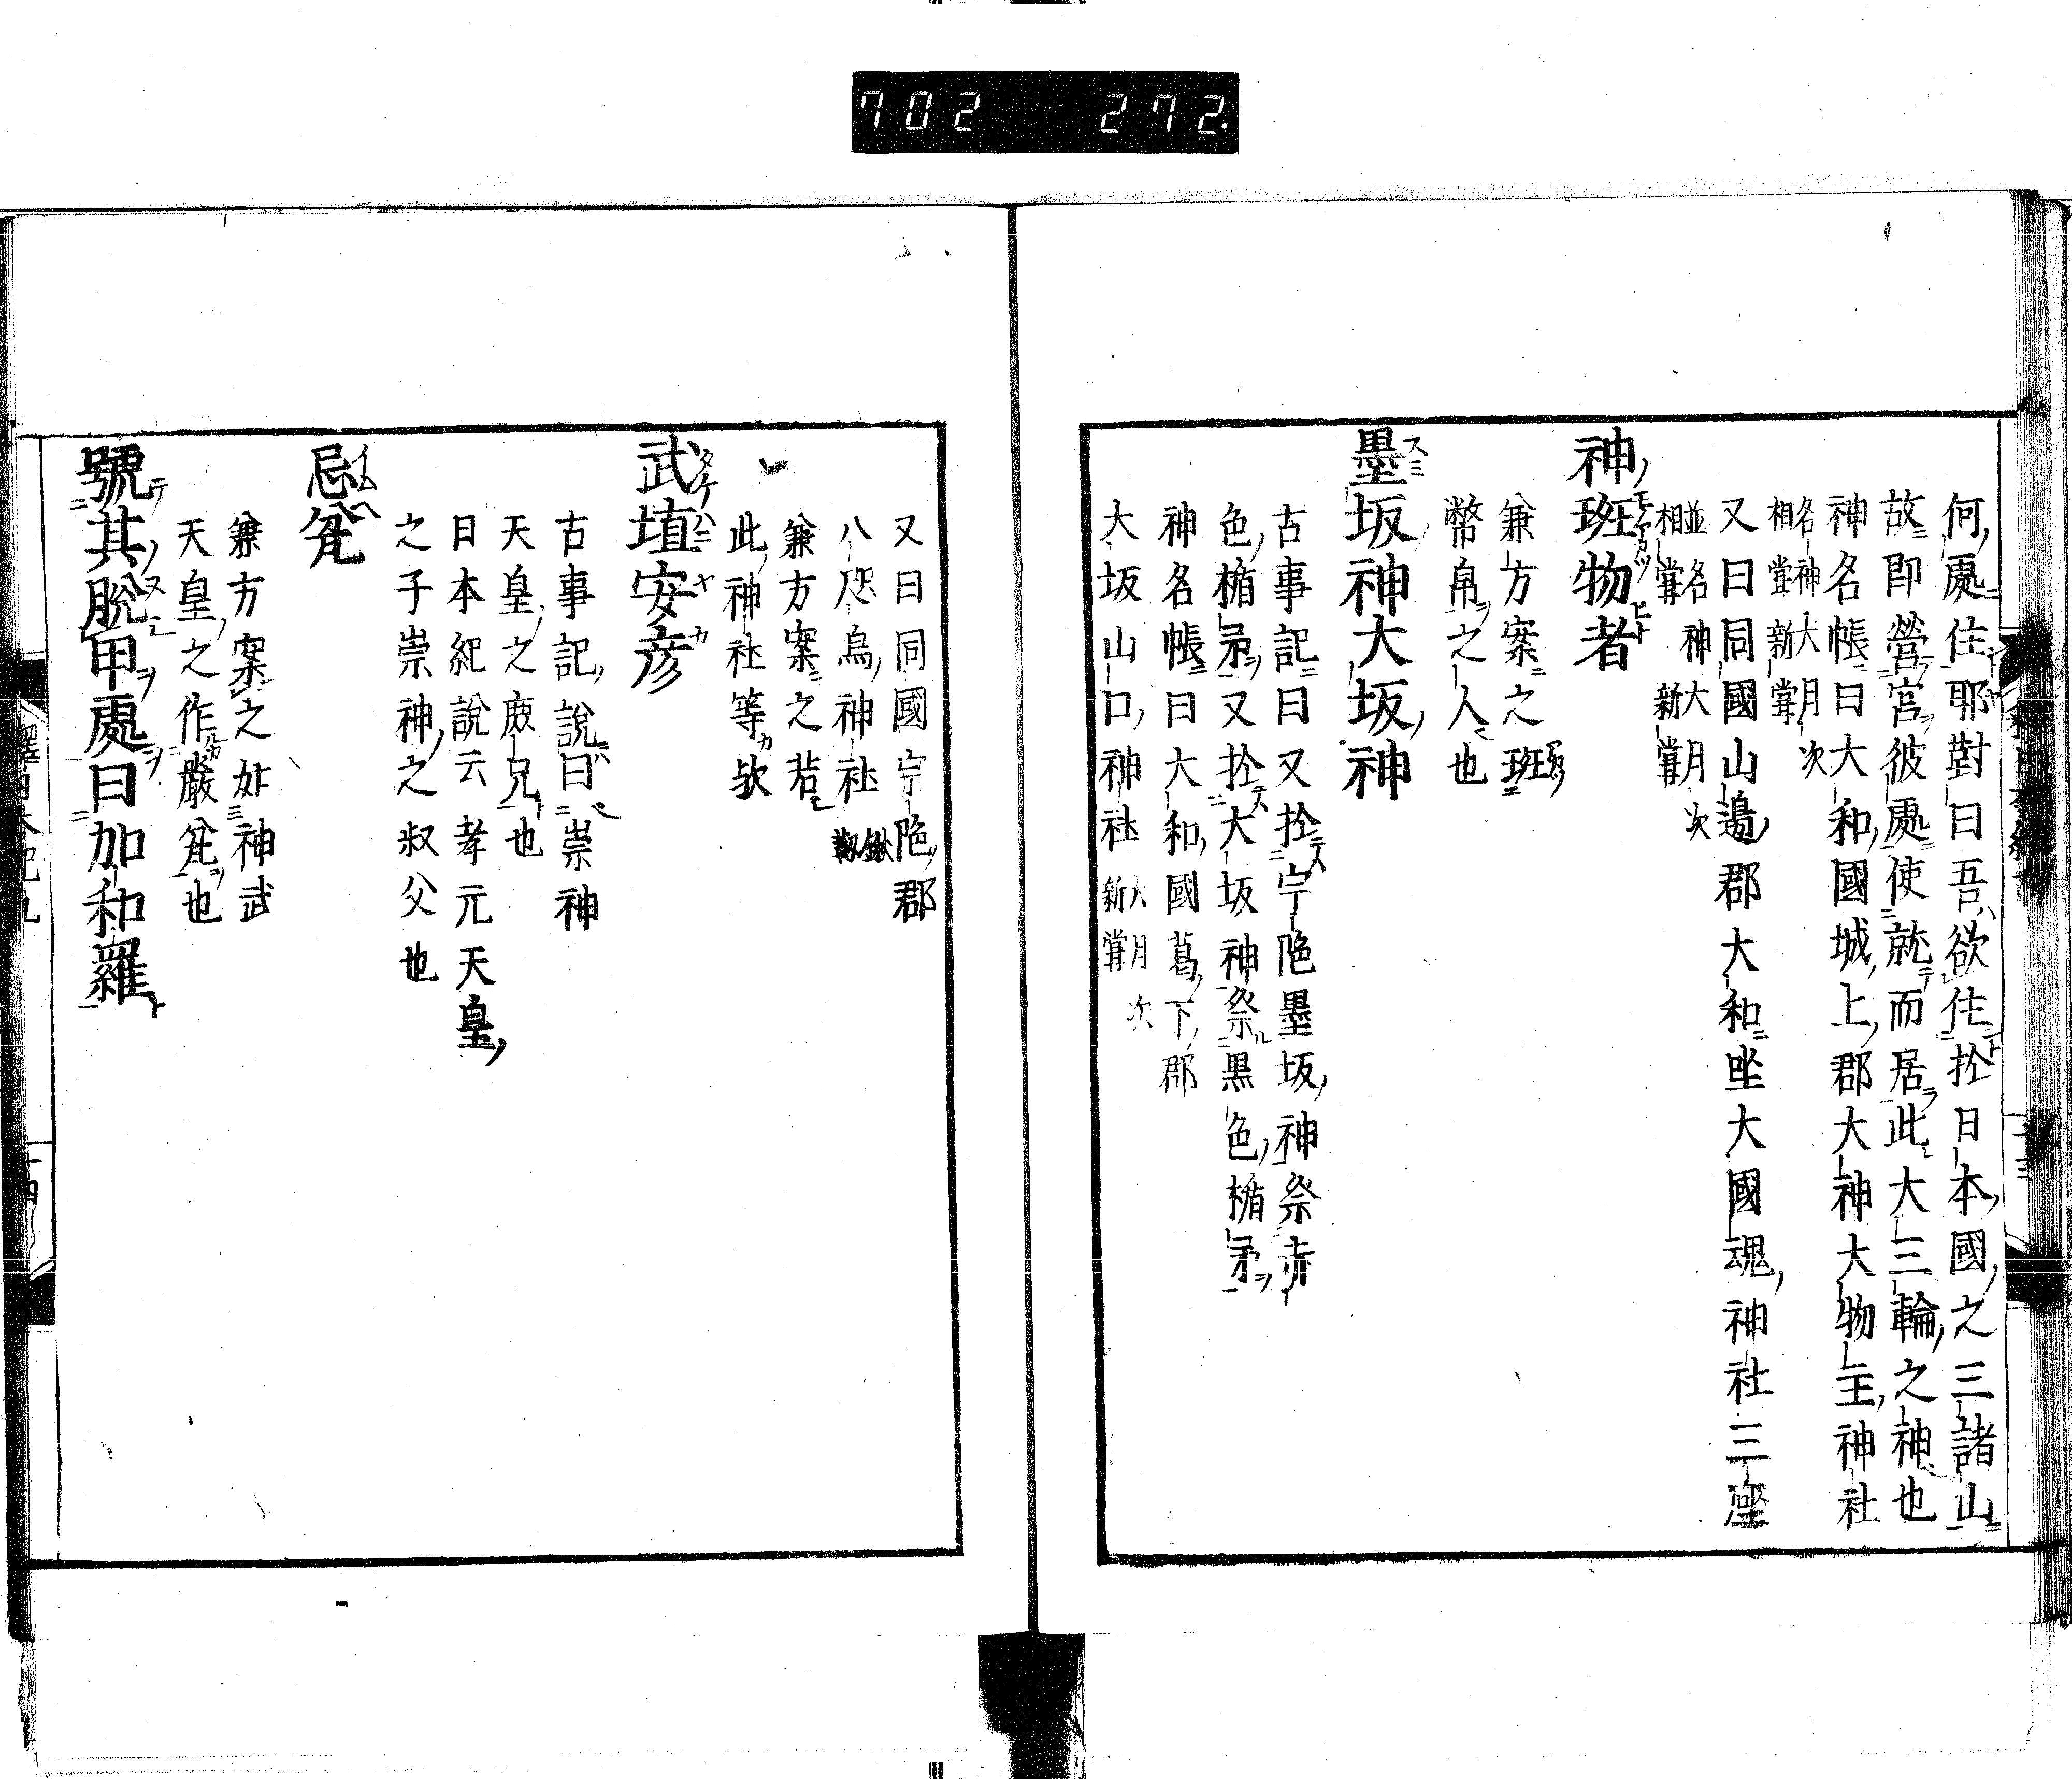 702 272.
何處住耶對曰吾欲住於日本國之三諸山
故即營宮彼處使就而居此大三輪之神也
神名帳曰大和國城上郡大神大物主神社
名神大月次
相甞新甞
又曰同國山邊郡大和坐大國魂神社三座
並名神大月次
相甞新甞
神班物者
兼方案之班
幣帛之人也
墨坂神大坂神
古事記曰又於宇陁墨坂神祭赤
色楯矛又於大坂神祭黒色楯矛
神名帳曰大和國葛下郡
大坂山口神社
大月次
新甞
又曰同國宇陁郡
八咫烏神社
鍬
靱
兼方案之若
此神社等欤
武埴安彦
古事記說曰崇神
天皇之庶兄也
日本紀說云孝元天皇
之子崇神之叔父也
忌瓮
兼方案之如神武
天皇之作嚴瓮也
號其脫甲處曰加和羅